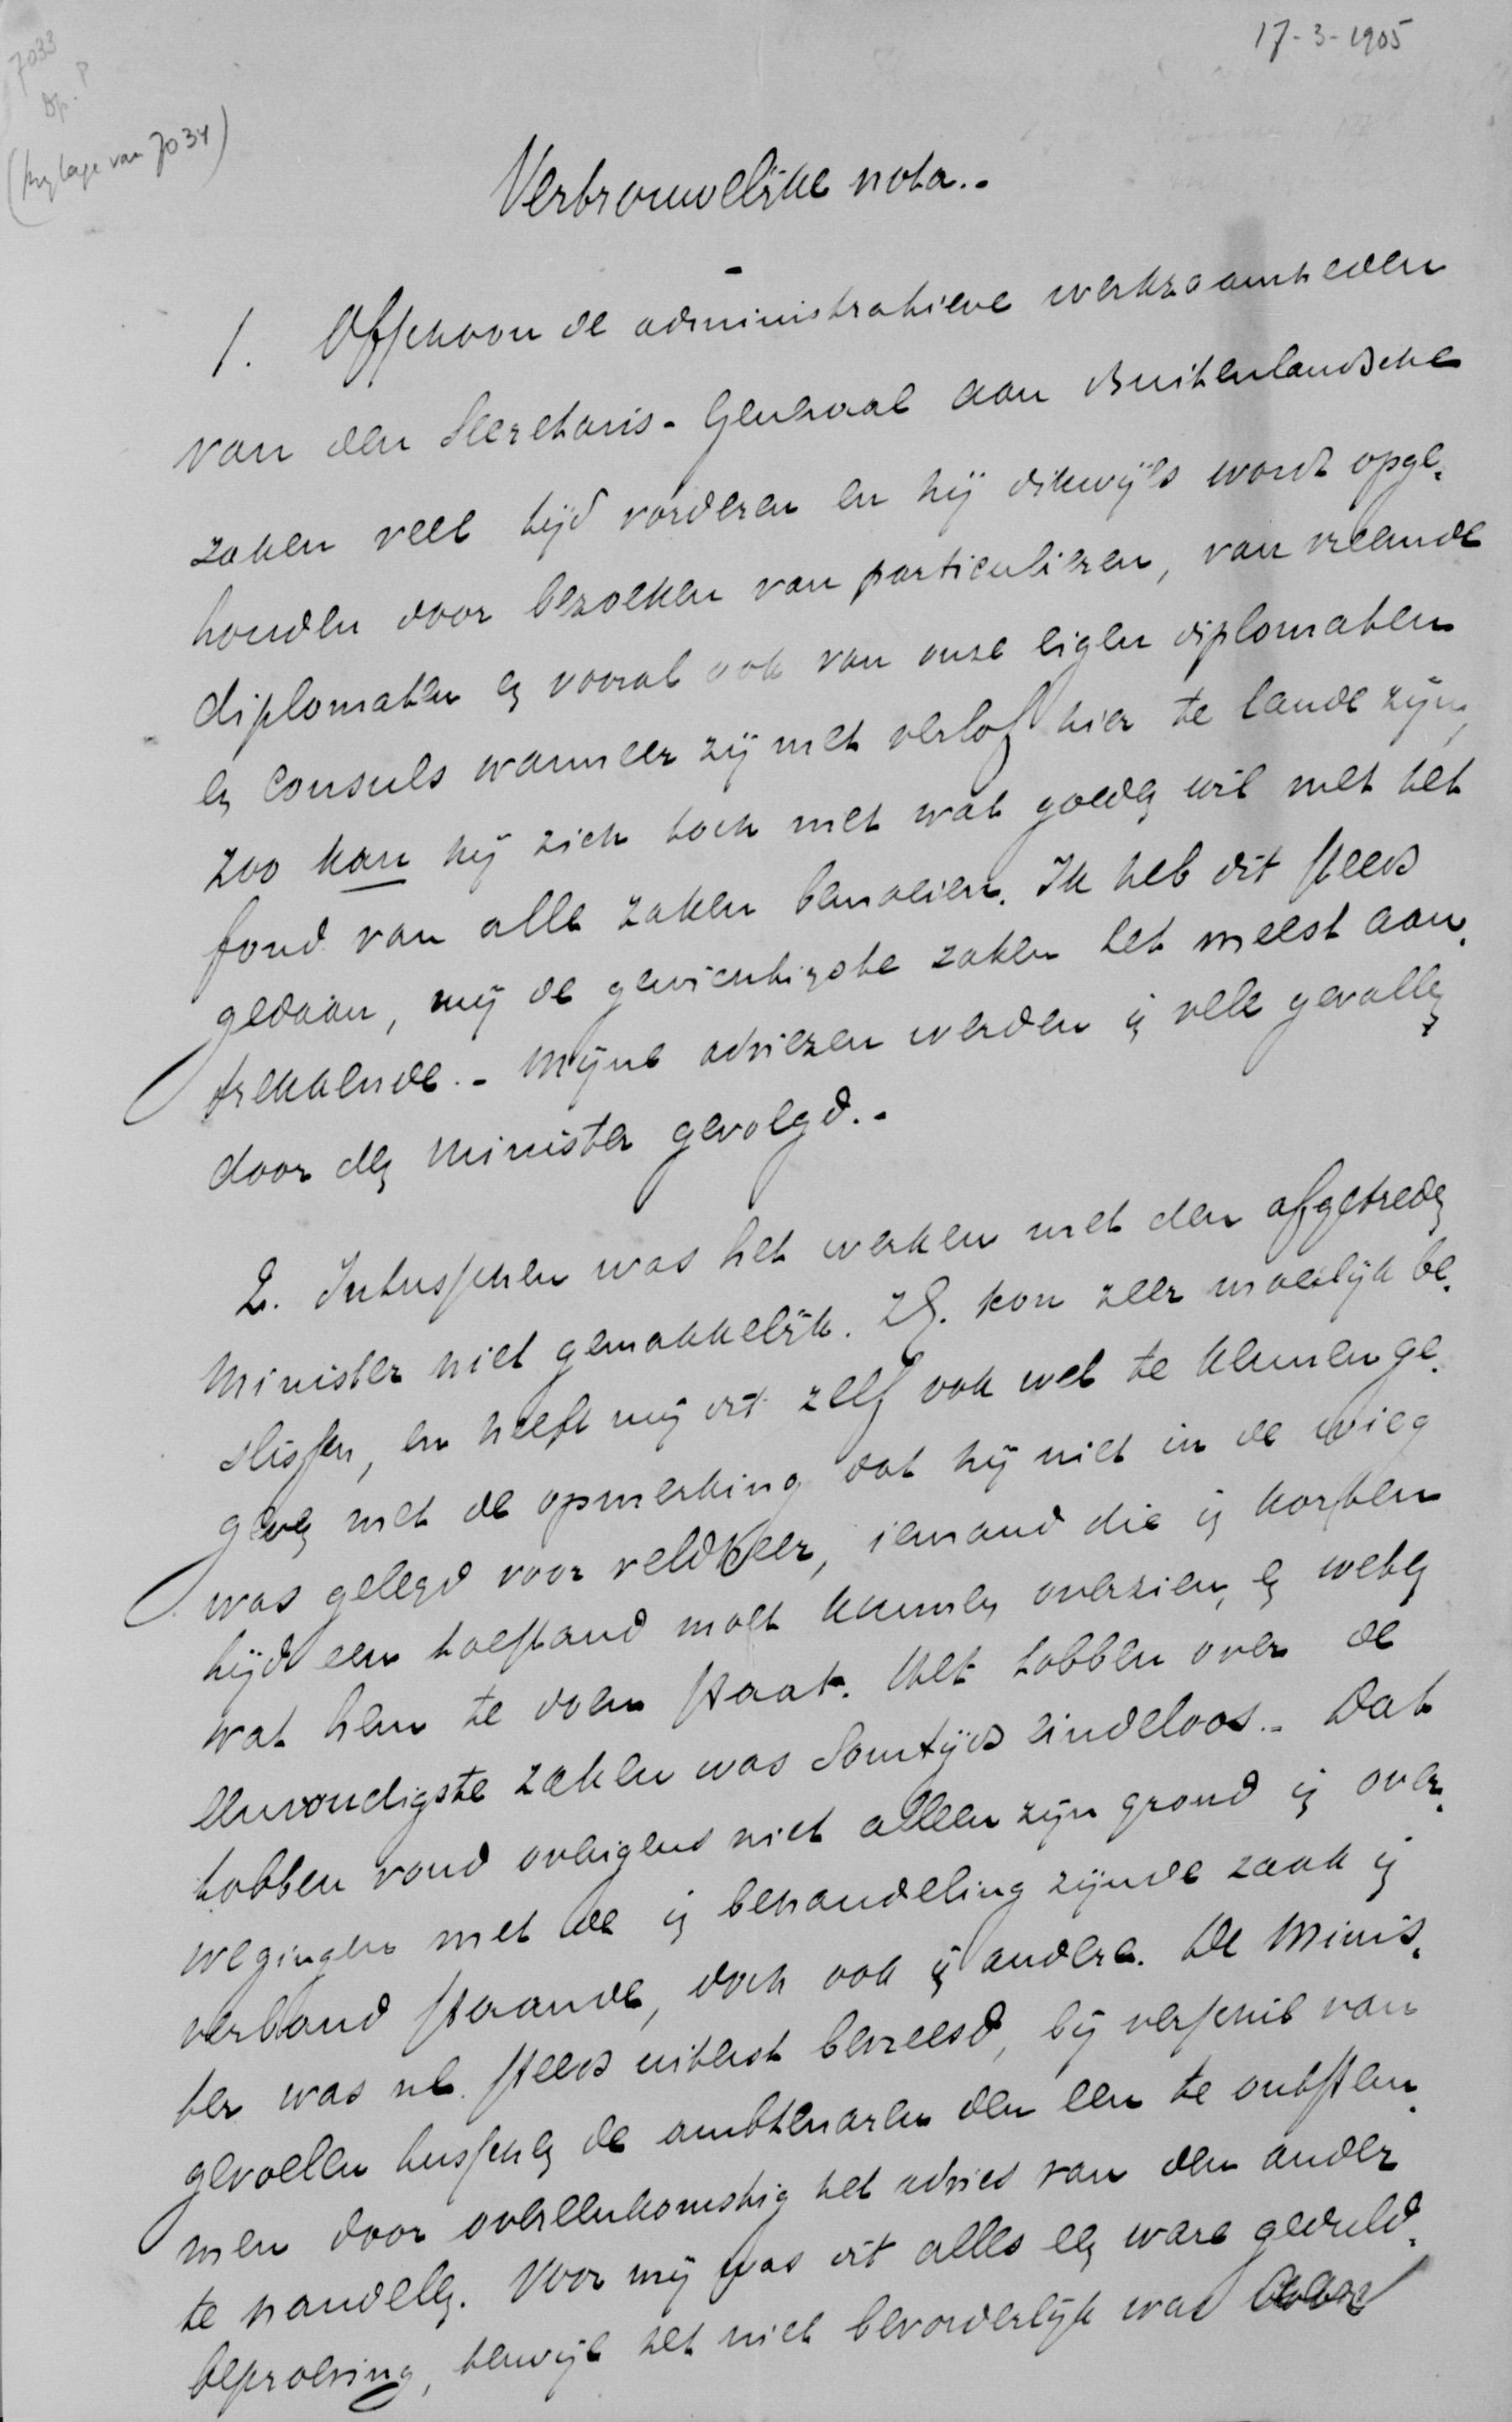 17-3-1905
7033
Dp. P
(bylage van 7034)
Vertrouwelijke nota.-
1. Ofschoon de administratieve werkzaamheden
van den Secretaris-Generaal aan Buitenlandsche
zaken veel tijd vorderen en hij dikwijls wordt opge-
houden door bezoeken van particulieren, van vreemde
diplomaten en vooral ook van onze eigen diplomaten
en consuls wanneer zij met verlof hier te lande zijn,
zoo kan hij zich toch met wat goeden wil met het
fond van alle zaken bemoeien. Ik heb dit steeds
gedaan, mij de gewichtigste zaken het meest aan-
trekkende.- Mijne adviezen werden in vele gevallen
door den Minister gevolgd.-
2. Intusschen was het werken met den afgetreden
Minister niet gemakkelijk. ZE. kon zeer moeilijk be-
slissen, en heeft mij dit zelf ook wel te kennen ge-
geven met de opmerking dat hij niet in de wieg
was gelegd voor veldheer, iemand die in korten
tijd een toestand moet kunnen overzien, en weten
wat hem te doen staat. Het tobben over de
eenvoudigste zaken was somtijds eindeloos.- Dat
tobben vond overigens niet alleen zijn grond in over-
wegingen met de in behandeling zijnde zaak in
verband staande, doch ook in andere. De Minis-
ter was nl. steeds uiterst bevreesd, bij verschil van
gevoelen tusschen de ambtenaren den een te ontstem-
men door overeenkomstig het advies van den ander
te handelen. Voor mij was dit alles een ware geduld-
beproeving, terwijl het niet bevorderlijk was voor